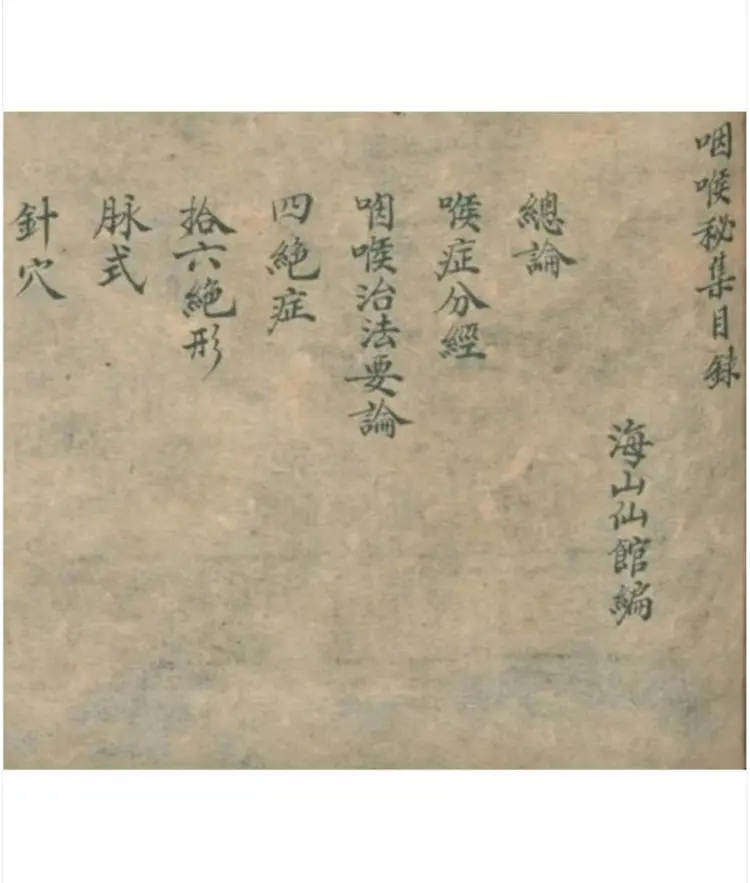 咽喉秘集目錄
海山仙館編
總論
喉症分經
咽喉治法要論
四絕症
拾六絕形
脉式
針穴